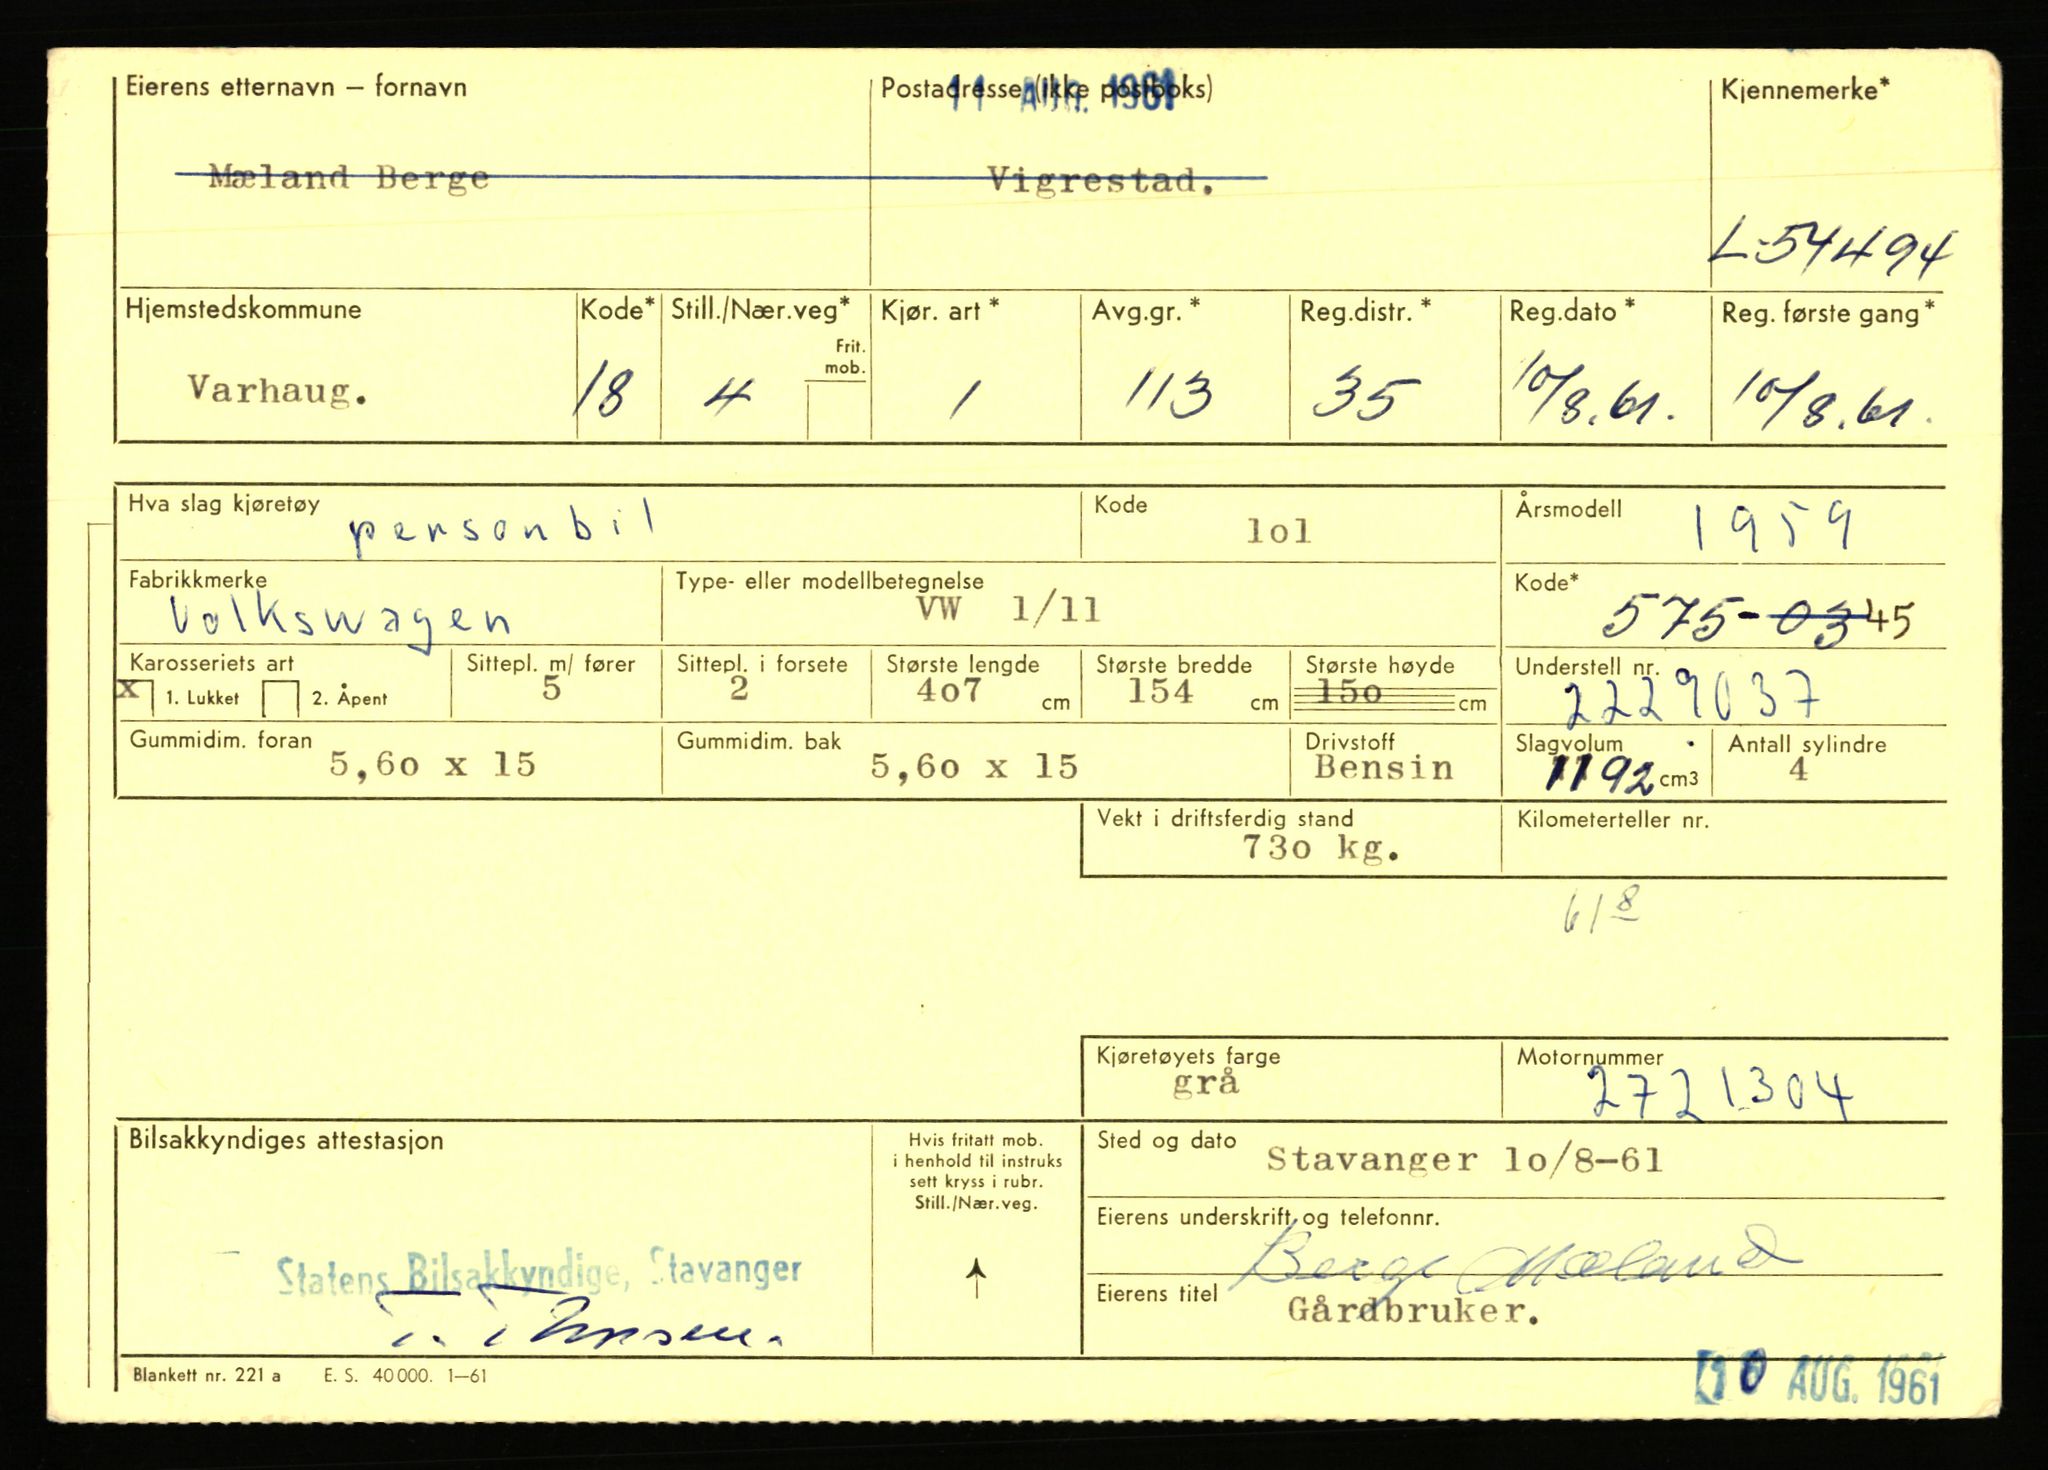 Eierens etternavn – fornavn
Postadresse (ikke postboks)
11 AUG. 1961
Kjennemerke*
Mæland Berge
Vigrestad.
L-54494
Hjemstedskommune
Kode*
Still./Nær.veg*
Frit.
mob.
Kjør. art *
Avg.gr. *
Reg.distr. *
Reg.dato *
Reg. første gang *
Varhaug.
18
4
1
113
35
10/8.61.
10/8.61.
Hva slag kjøretøy
personbil
Kode
lol
Årsmodell
1959
Fabrikkmerke
Volkswagen
Type- eller modellbetegnelse
VW 1/11
Kode*
575-03 45
Karosseriets art
x 1. Lukket 2. Åpent
Sittepl. m/ fører
5
Sittepl. i forsete
2
Største lengde
4o7 cm
Største bredde
154 cm
Største høyde
15o cm
Understell nr.
2229037
Gummidim. foran
5,6o x 15
Gummidim. bak
5,6o x 15
Drivstoff
Bensin
Slagvolum
1192 cm3
Antall sylindre
4
Vekt i driftsferdig stand
73o kg.
Kilometerteller nr.
61 8
Kjøretøyets farge
grå
Motornummer
2721304
Bilsakkyndiges attestasjon
Hvis fritatt mob.
i henhold til instruks
sett kryss i rubr.
Still./Nær.veg.
Sted og dato
Stavanger 1o/8-61
Eierens underskrift og telefonnr.
Berge Mæland
Statens Bilsakkyndige, Stavanger
Eierens titel
Gårdbruker.
Blankett nr. 221 a E. S. 40 000. 1–61
10 AUG. 1961